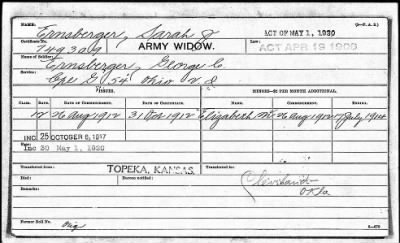 NAME: (3—F. A. E.)
Ernsberger, Sarah J ACT OF MAY 1, 1920
Certificate No. ARMY WIDOW. Law:
749309 ACT APR 19 1908
Name of Soldier:
Ernsberger, George C.
G. 54 Ohio
ISSUES. MINORS—$2 PER MONTH ADDITIONAL.
CLASS. RATE. DATE OF COMMENCEMENT. DATE OF CERTIFICATE. NAME. DATE OF COMMENCEMENT.
12 26 Aug 1912 31 Oct 1912 Elizabeth M. 26 Aug 1912 7 July 1914
INC. 25 OCTOBER 6, 1917
Inc 30 May 1, 1920
Transferred from TOPEKA, KANSAS Transferred to
Remarks: Bureau notified: Cleveland
Okla
Former Roll No. Orig